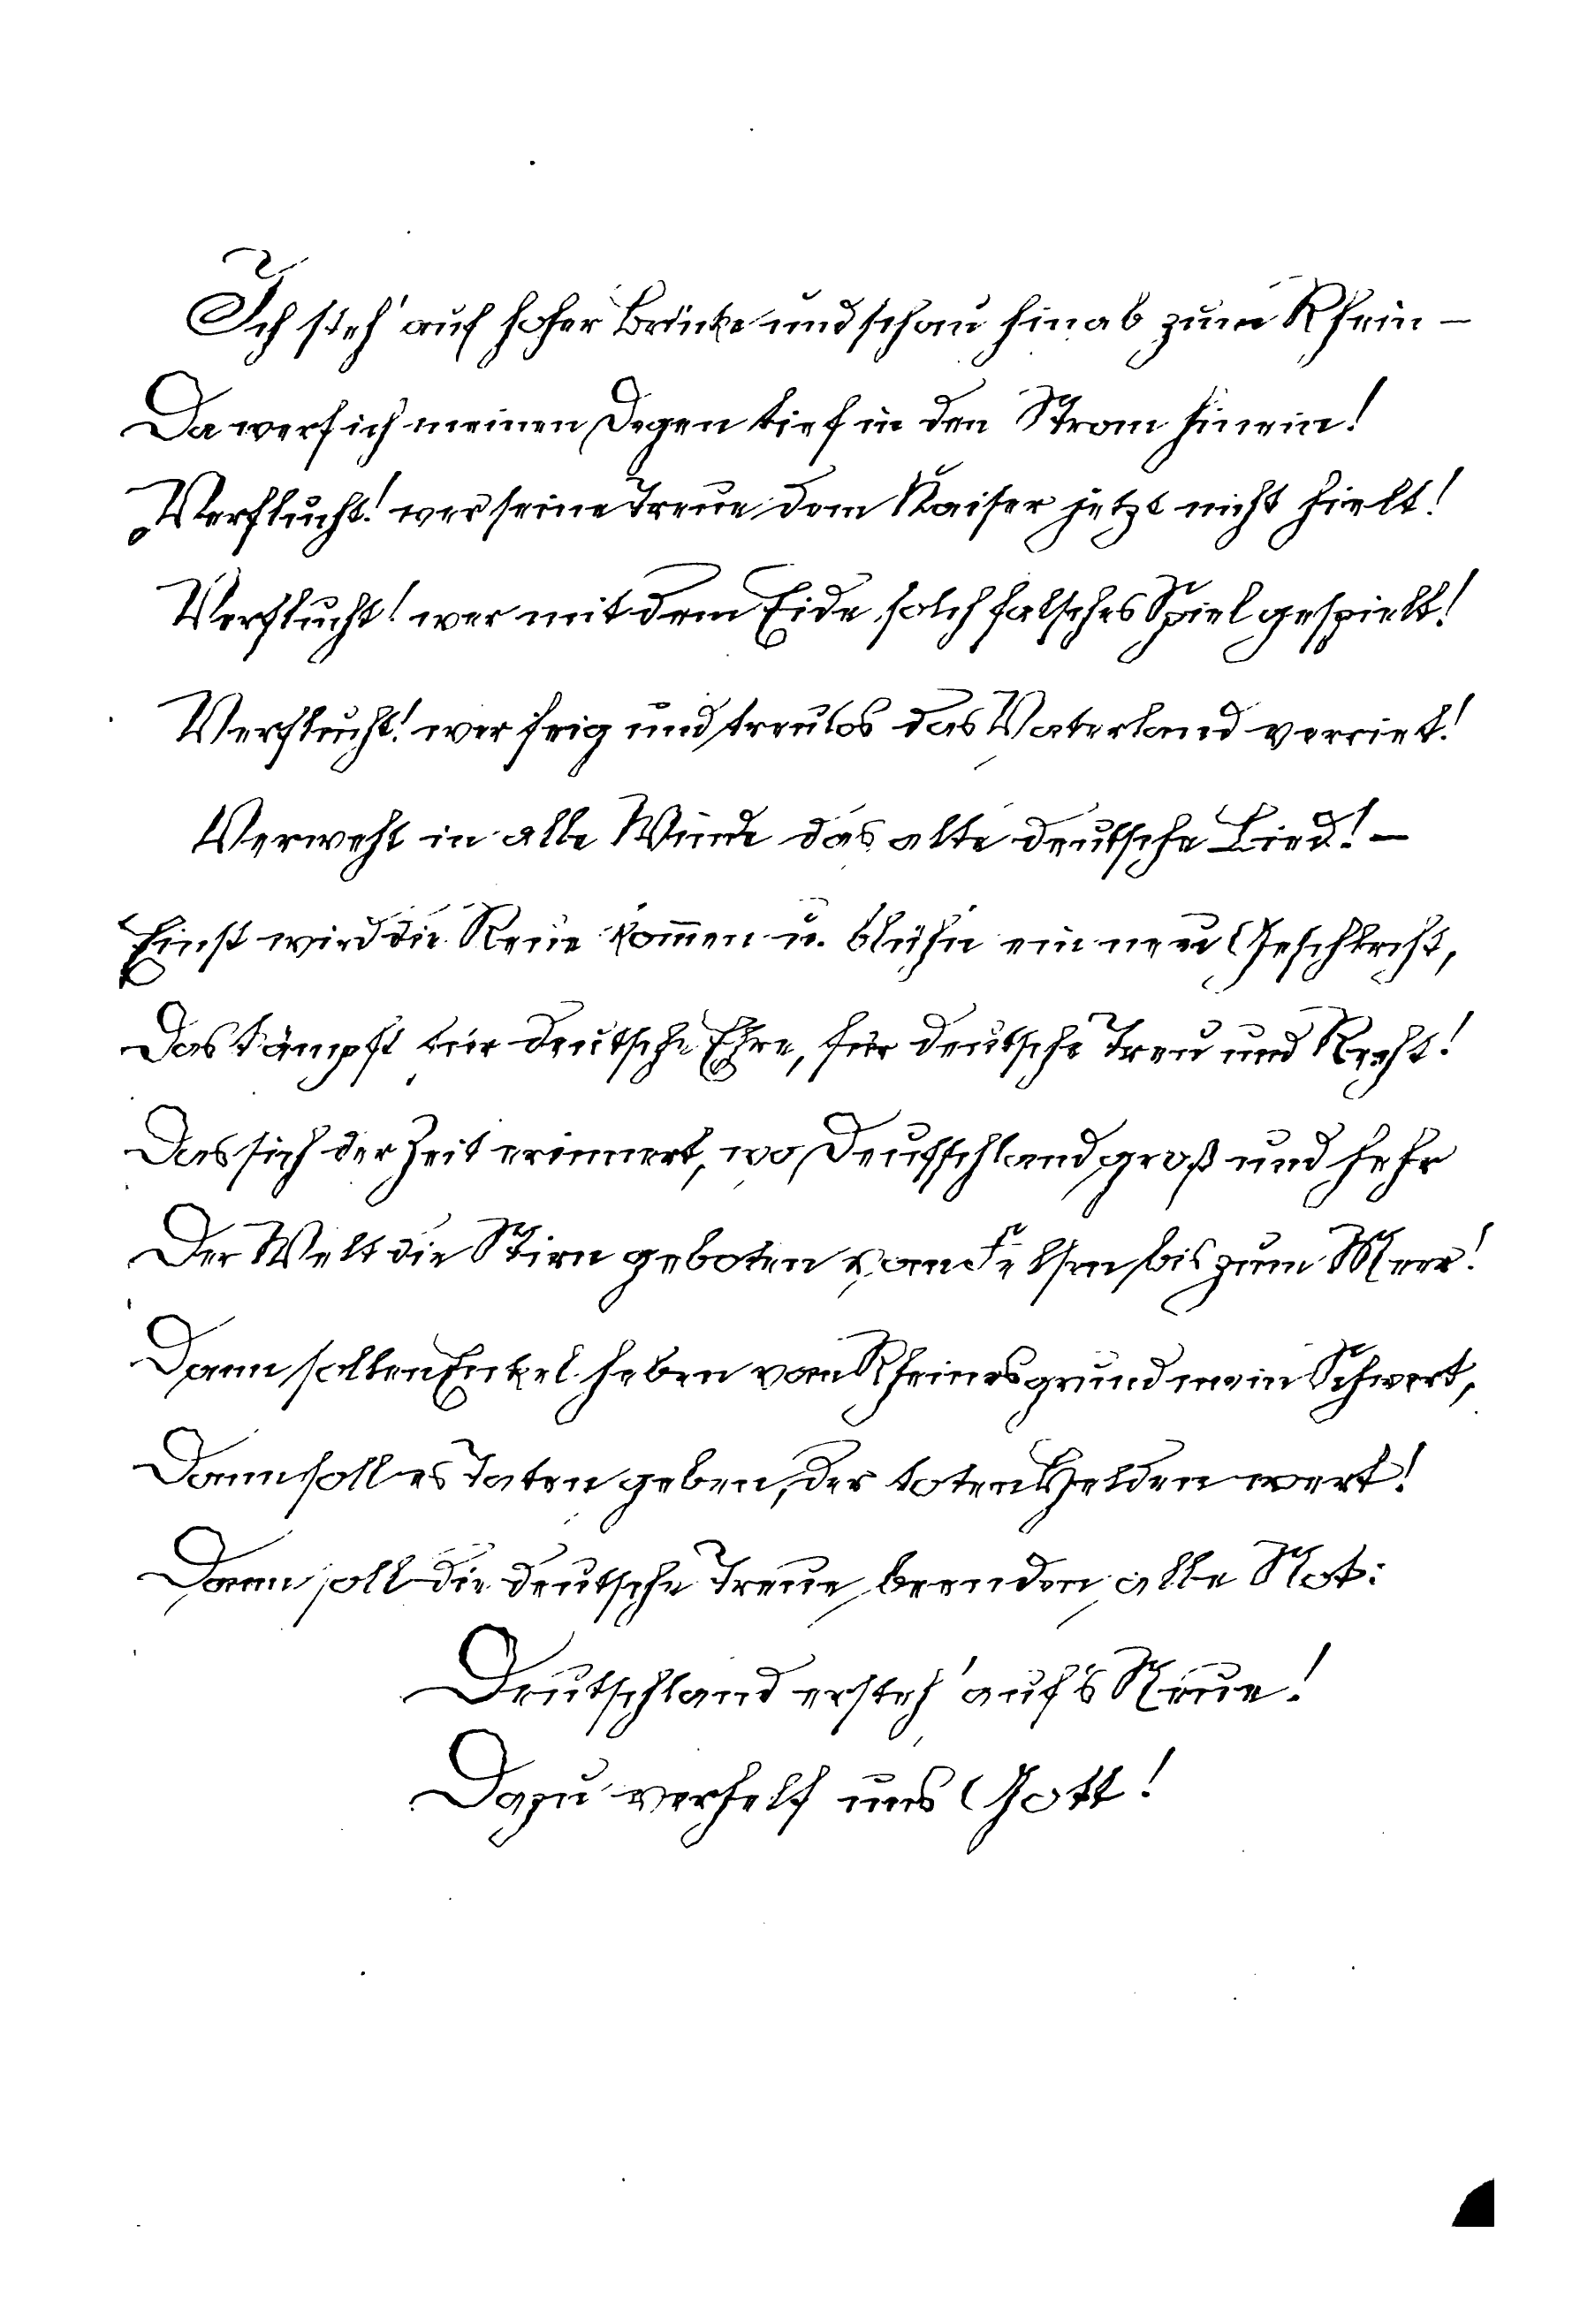 Ich steh' auf hoher Brücke und schau hinab zum Rhein –
Da werf ich meinen Degen tief in den Strom hinein!
Verflucht! wer seine Treue dem Kaiser jetzt nicht hielt!
Verflucht! wer mit dem Eide solch falsches Spiel gespielt!
Verflucht! wer feig und treulos das Vaterland verriet!
Verweht in alle Winde das alte deutsche Lied! –
Einst wird die Reue kom̅en u. blühn ein neu Geschlecht,
Das kämpft für deutsche Ehre, für deutsche Treu und Recht!
Das sich der Zeit erinnert, wo Deutschland groß und hehr
Der Welt die Stirn geboten vom Felsen bis zum Meer!
Dann sollen Enkel heben vom Rheinesgrund mein Schwert,
Dann soll es Taten geben, der toten Helden wert!
Dann soll die deutsche Treue beenden alle Not:
Deutschland ersteh' auf's Neue!
Dazu verhelf uns Gott!